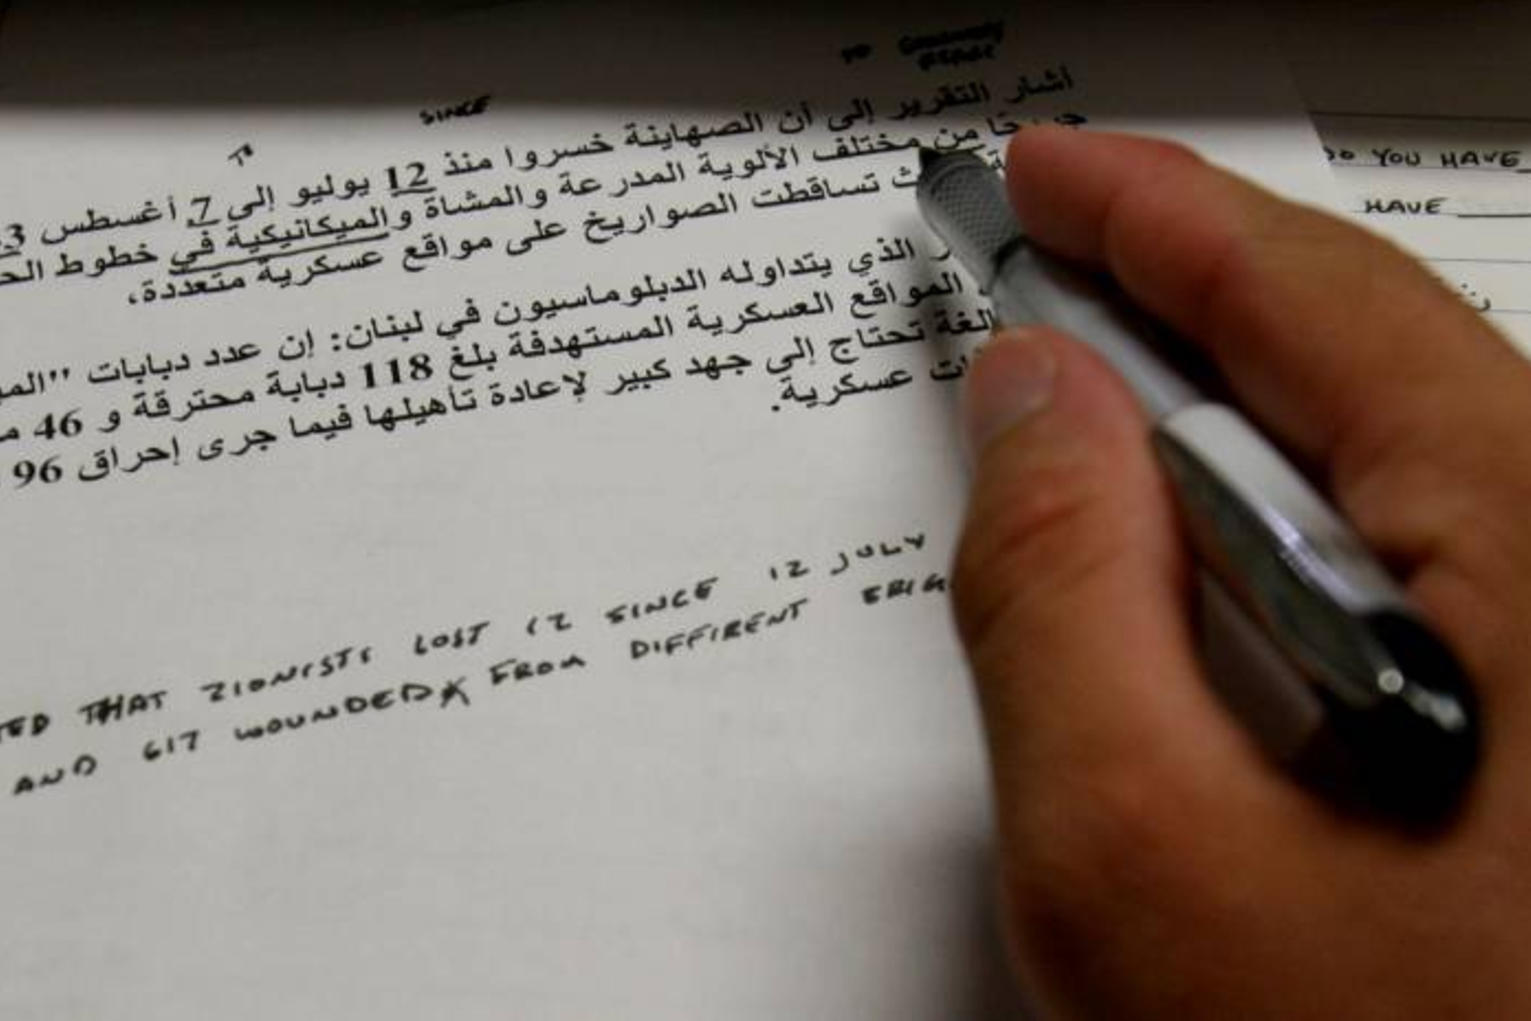 SINCE
TO
أشار التقرير إلى أن الصهاينة خسروا منذ 12 يوليو إلى 7 أغسطس
من مختلف الألوية المدرعة والمشاة والميكانيكية في خطوط
تساقطت الصواريخ على مواقع عسكرية متعددة،
الذي يتداوله الدبلوماسيون في لبنان: إن عدد دبابات
المواقع العسكرية المستهدفة بلغ 118 دبابة محترقة و 46
تحتاج إلى جهد كبير لإعادة تأهيلها فيما جرى إحراق 96
عسكرية.
THAT ZIONISTS LOST 12 SINCE 12 JULY
AND 617 WOUNDED FROM DIFFIRENT
DO YOU HAVE
HAVE